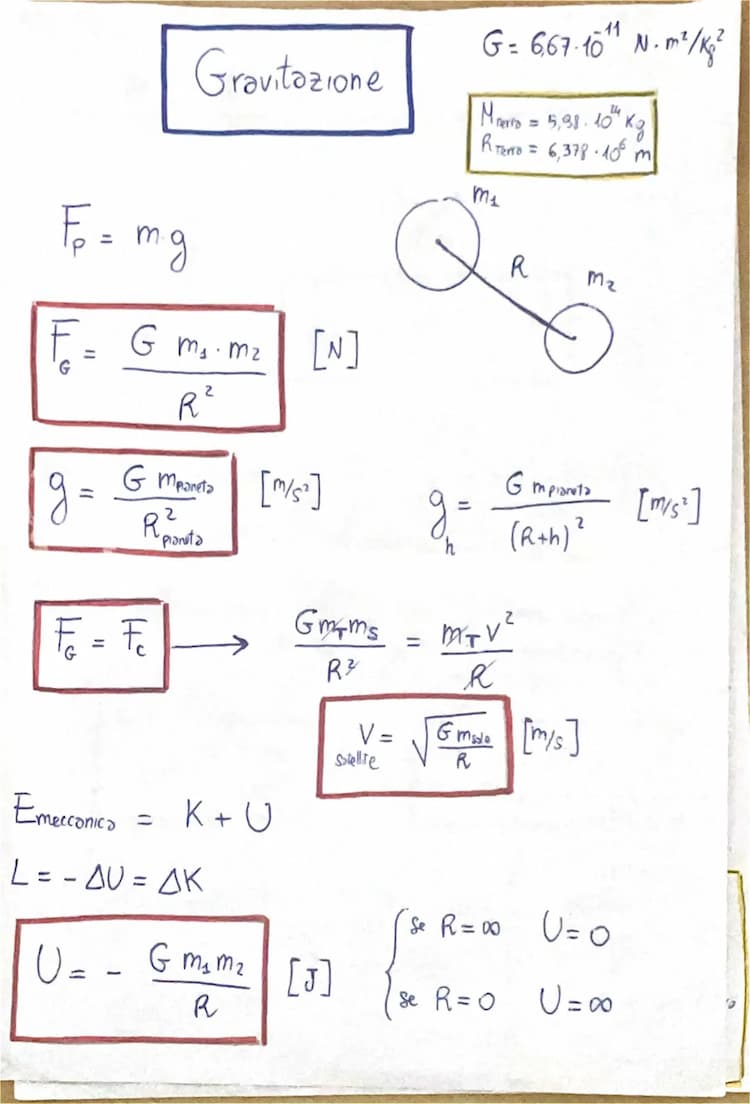 Gravitazione
G = 6,67·10⁻¹¹ N·m²/Kg²
M_Terra = 5,98·10²⁴ Kg
R_Terra = 6,378·10⁶ m
F_p = m·g
m₁
R
m₂
F_G = G m₁·m₂ / R² [N]
g = G m_pianeta / R²_pianeta [m/s²]
g_h = G m_pianeta / (R+h)² [m/s²]
F_G = F_c → G m_T m_S / R² = m_T V² / R
V_satellite = √(G m_sole / R) [m/s]
E_meccanica = K + U
L = -ΔU = ΔK
U = - G m₁ m₂ / R [J]
{ se R = ∞ U = 0
se R = 0 U = ∞